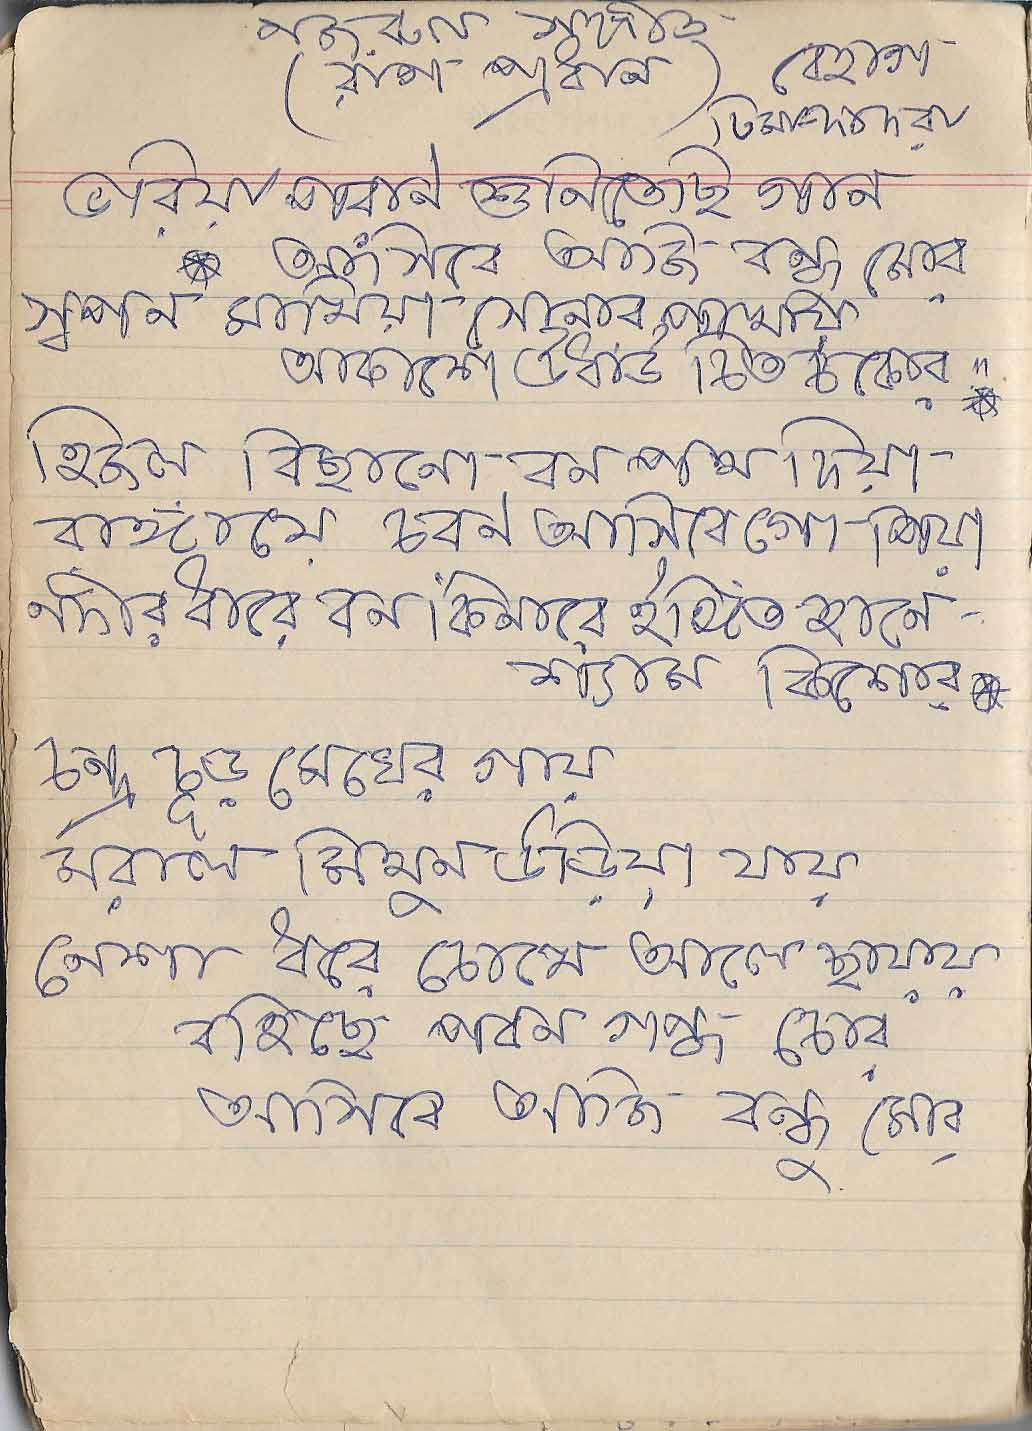 নজরুল সঙ্গীত
(রাগ প্রধান) বেহাগ
ঢিমা দাদরা
ভরিয়া পরান শুনিতেছি গান
আসিবে আজি বন্ধু মোর
স্বপন মাখিয়া সোনার পাখায়
আকাশে উধাও চিত চকোর
হিজল বিছানো বন পথ দিয়া
রাঙায়ে চরণ আসিবে গো পিয়া
নদীর ধারে বন কিনারে ইঙ্গিত হানে
শ্যাম কিশোর
চন্দ্রচূড় মেঘের গায়
মরাল মিথুন উড়িয়া যায়
নেশা ধরে চোখে আলো ছায়ায়
বহিছে পবন গন্ধ চোর
আসিবে আজি বন্ধু মোর